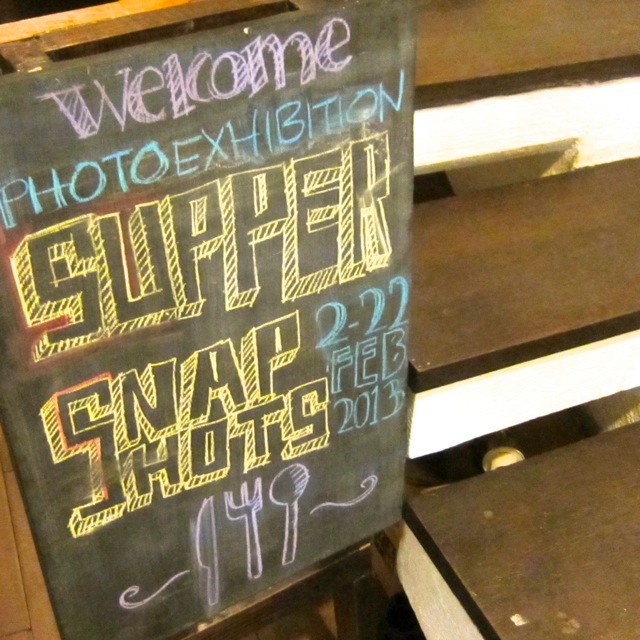 Welcome
PHOTOEXHIBITION
SUPPER
SNAP
SHOTS
2-22
FEB
2013